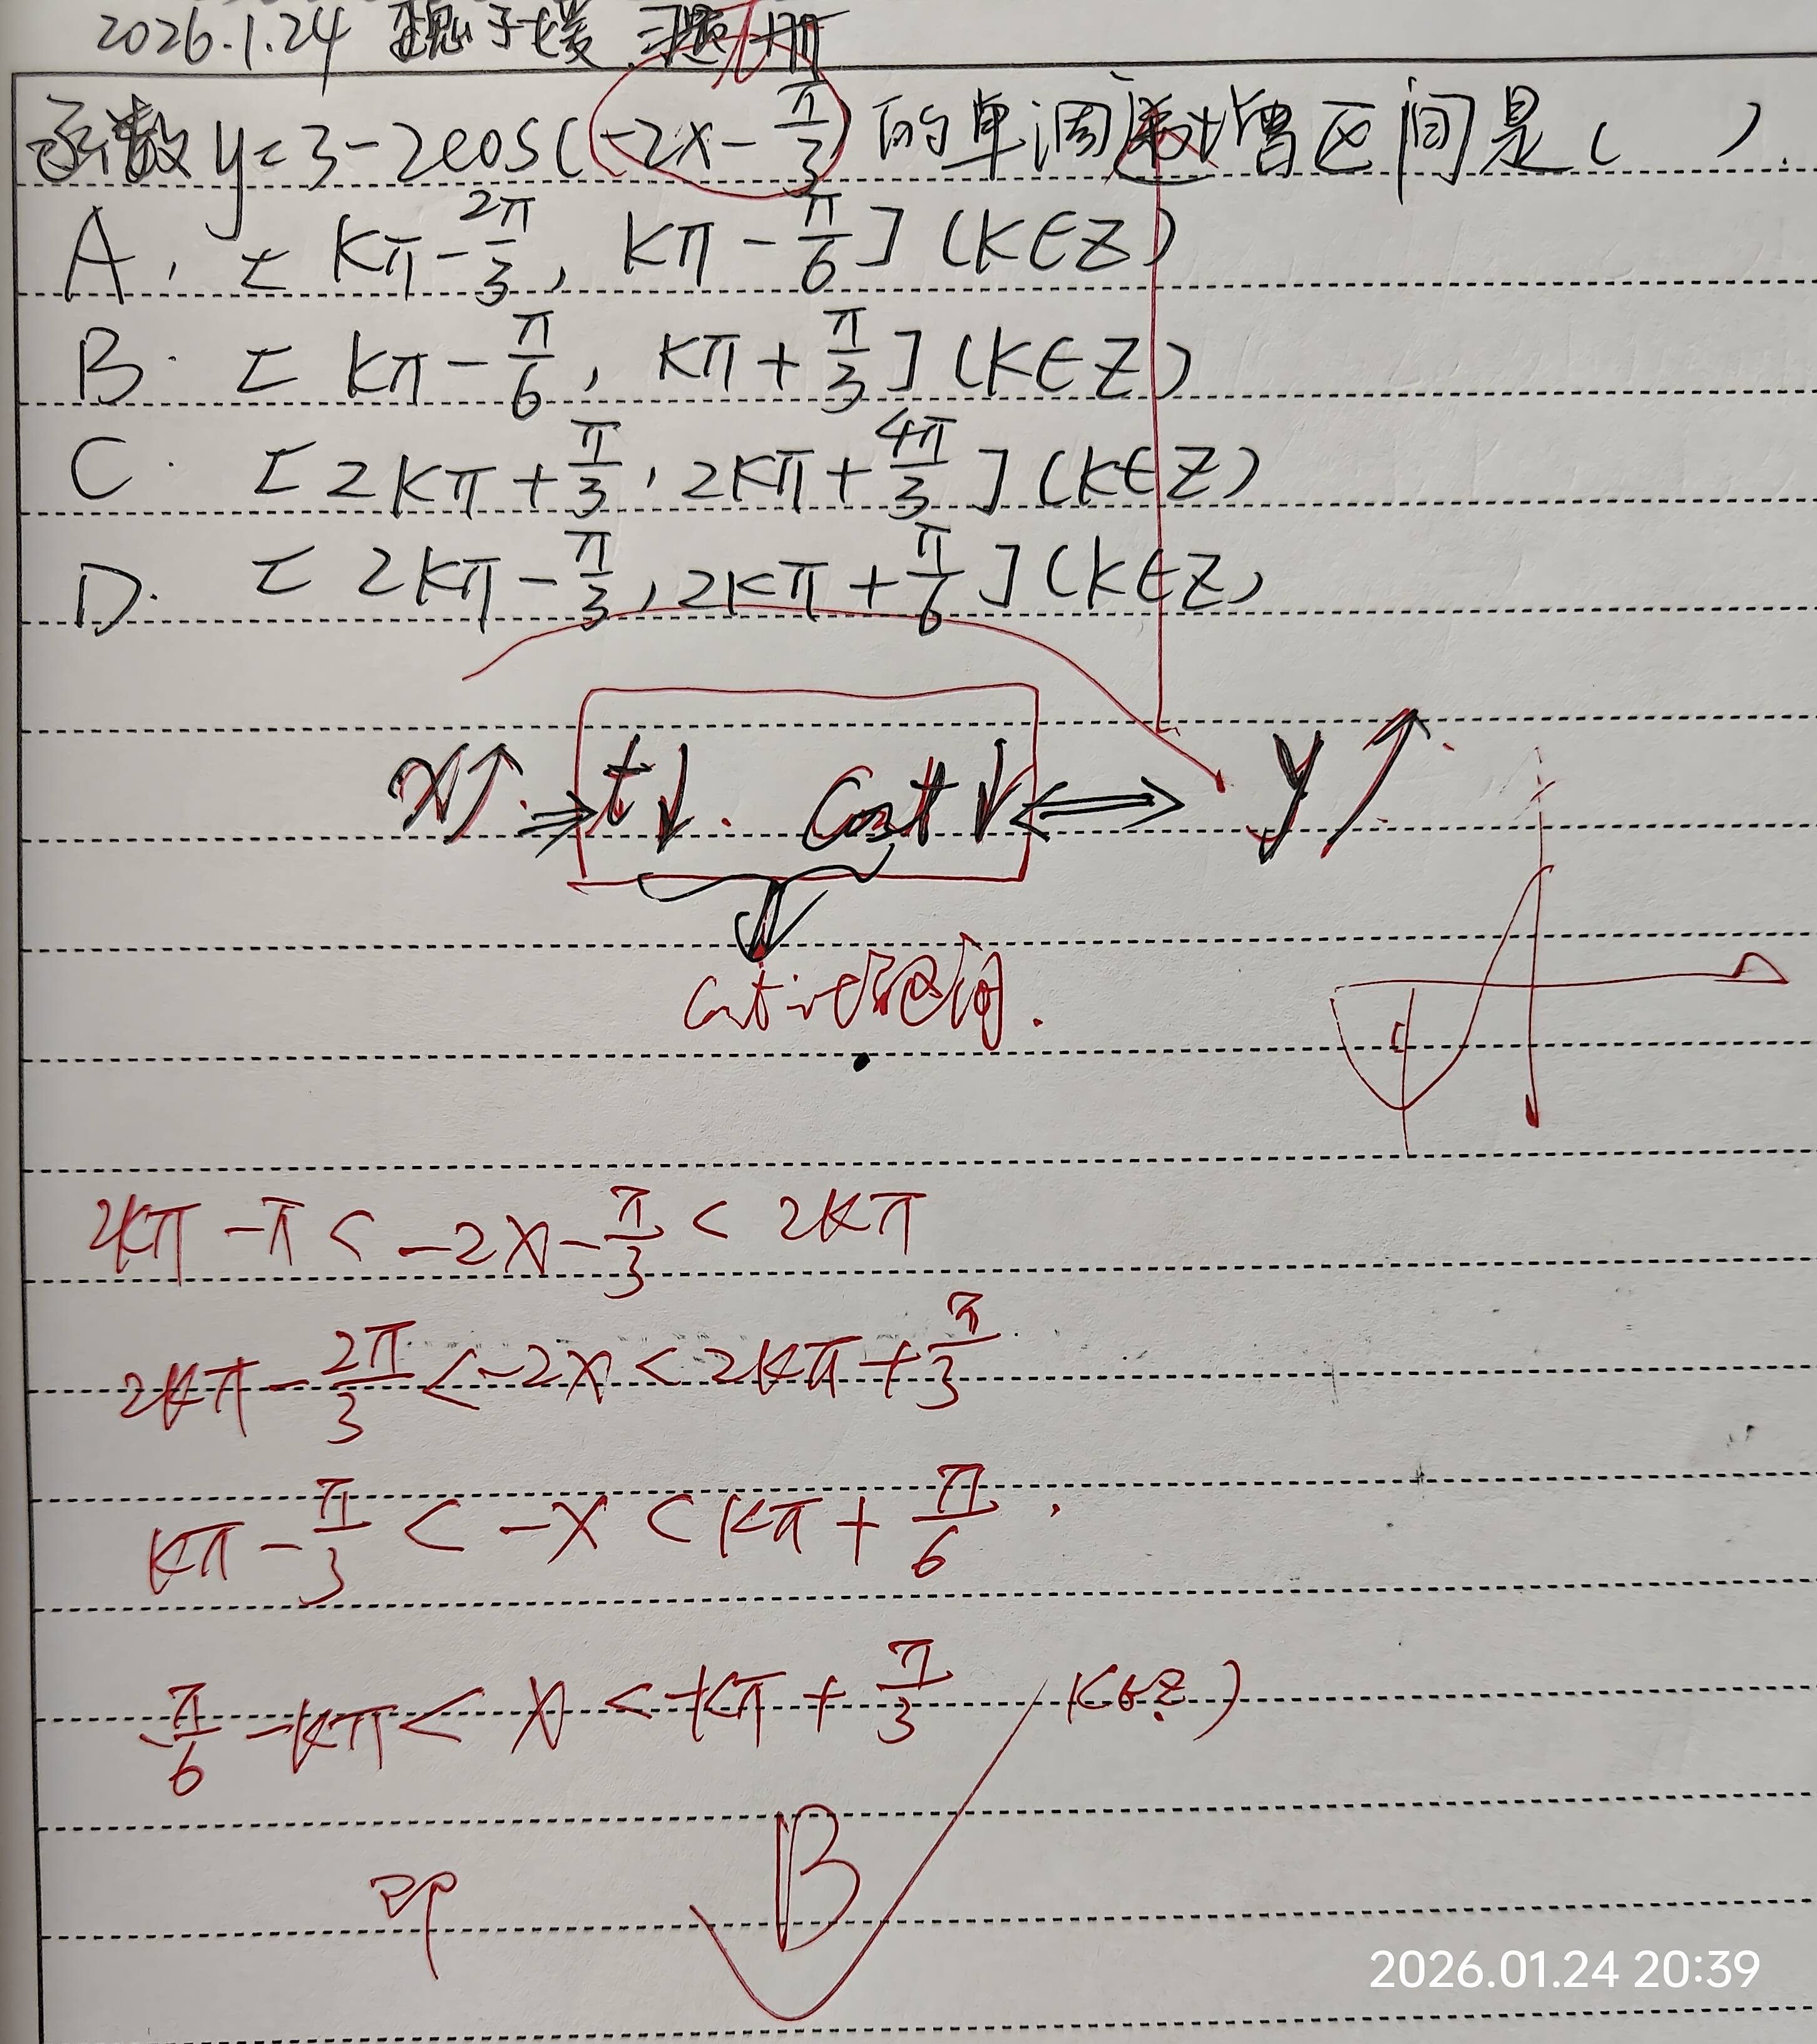 2026.1.24 魏子媛 习题册
t
函数y=3-2cos(-2x-π/3)的单调递增区间是( ).
A. [kπ-2π/3, kπ-π/6](k∈Z)
B. [kπ-π/6, kπ+π/3](k∈Z)
C. [2kπ+π/3, 2kπ+4π/3](k∈Z)
D. [2kπ-π/3, 2kπ+π/6](k∈Z)
x↑. ⇒ t↓. cost↓ ⇔ y↑.
cost 区间.
2kπ-π<-2x-π/3<2kπ
2kπ-2π/3<-2x<2kπ+π/3
kπ-π/3<-x<kπ+π/6.
-π/6-kπ<x<-kπ+π/3 k∈Z)
即 B
2026.01.24 20:39